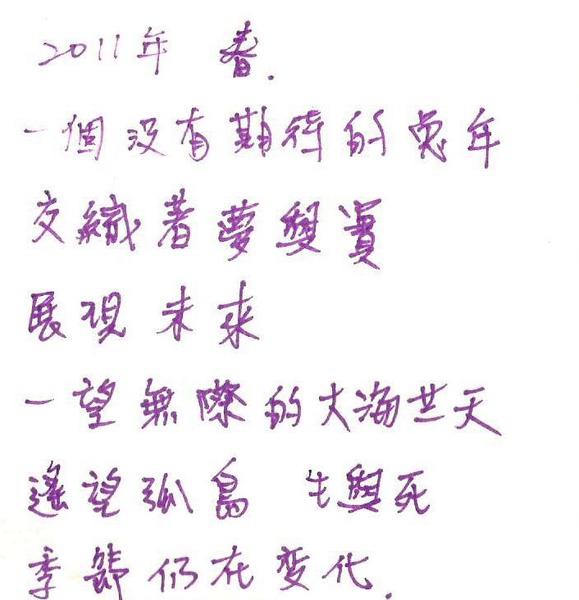 2011年 春.
一個没有期待的兔年
交織著夢與實
展現未來
一望無際的大海共天
遙望孤島 生與死
季節仍在变化.